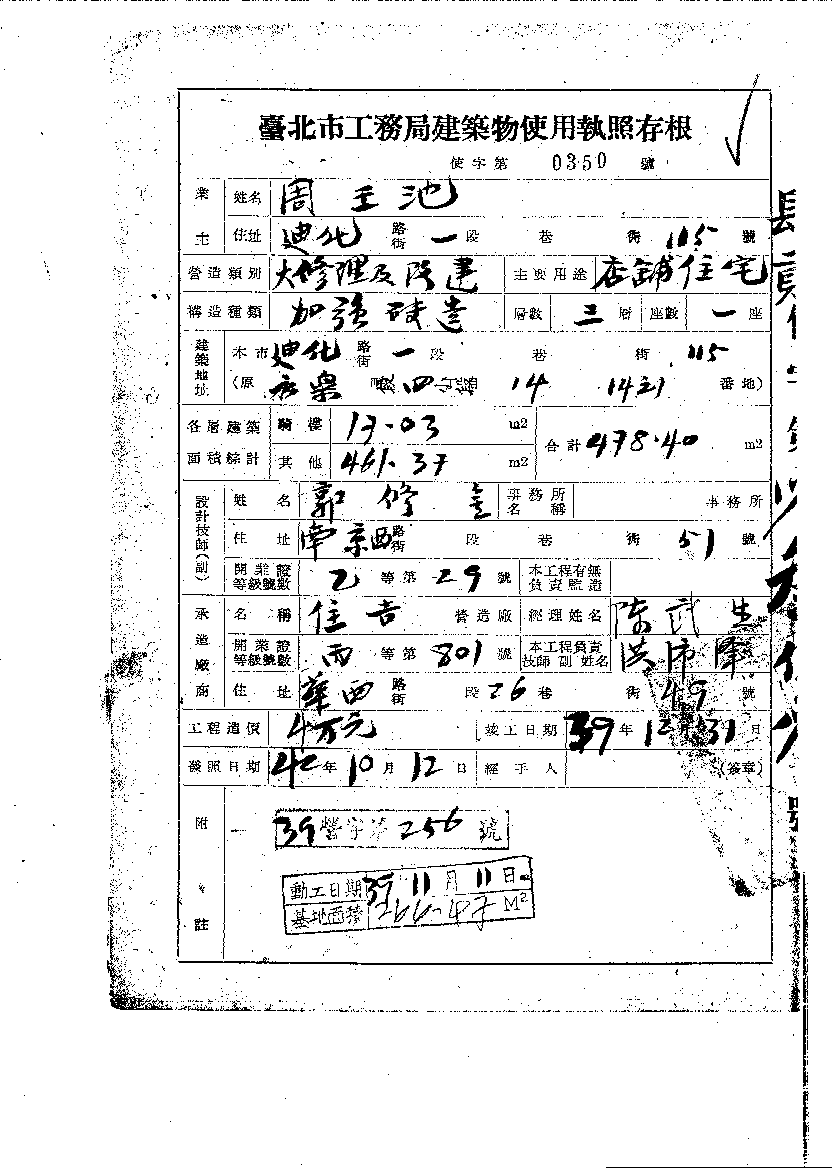 臺北市工務局建築物使用執照存根
使字第 0350 號
業主 姓名 周王池
住址 迪化 路街 一 段 巷 街 115 號
營造類別 大修理及改建 主要用途 店舖住宅
構造種類 加強磚造 層數 三 層 座數 一 座
建築地址 本市 迪化 路街 一 段 巷 街 115
(原 永樂 町 段 四 14 1421 番地)
各層建築面積綜計 騎樓 17.03 m2 合計 478.40 m2
其他 461.37 m2
設計技師(副) 姓名 郭修 事務所名稱 事務所
住址 南京西 路街 段 巷 街 51 號
開業證等級號數 乙 等第 29 號 本工程有無負責監造
承造廠商 名稱 住吉 營造廠 經理姓名 陳武生
開業證等級號數 丙 等第 801 號 本工程負責技師副姓名 洪沛
住址 華西 路街 段 26 巷 街 49 號
工程造價 4万元 竣工日期 39 年 12 31 日
發照日期 42 年 10 月 12 日 經手人 (簽章)
附註
39營字第256號
動工日期 39 11月11日
基地面積 M2